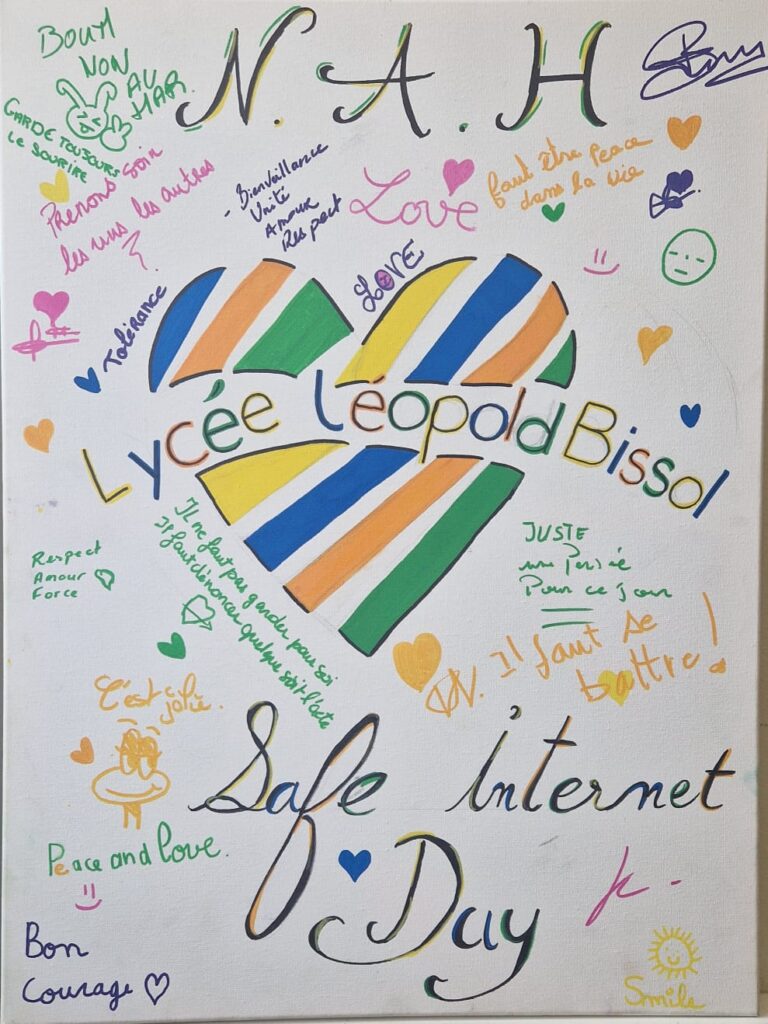 N.A.H
BOUH
NON
AU
HAR.
GARDE TOUJOURS
LE SOURIRE
Prenons soin
les uns les autres
- Bienvaillance
Unité
Amour
Respect
Love
faut être peace
dans la vie
LOVE
Tolérance
Lycée Léopold Bissol
Il ne faut pas garder pour soi
Il faut dénoncer quelque soit l'acte
Respect
Amour
Force
JUSTE
une Pensée
Pour ce jour
Il faut se
battre!
C'est jolie.
Safe internet
Day
Peace and love.
Bon
Courage
Smile